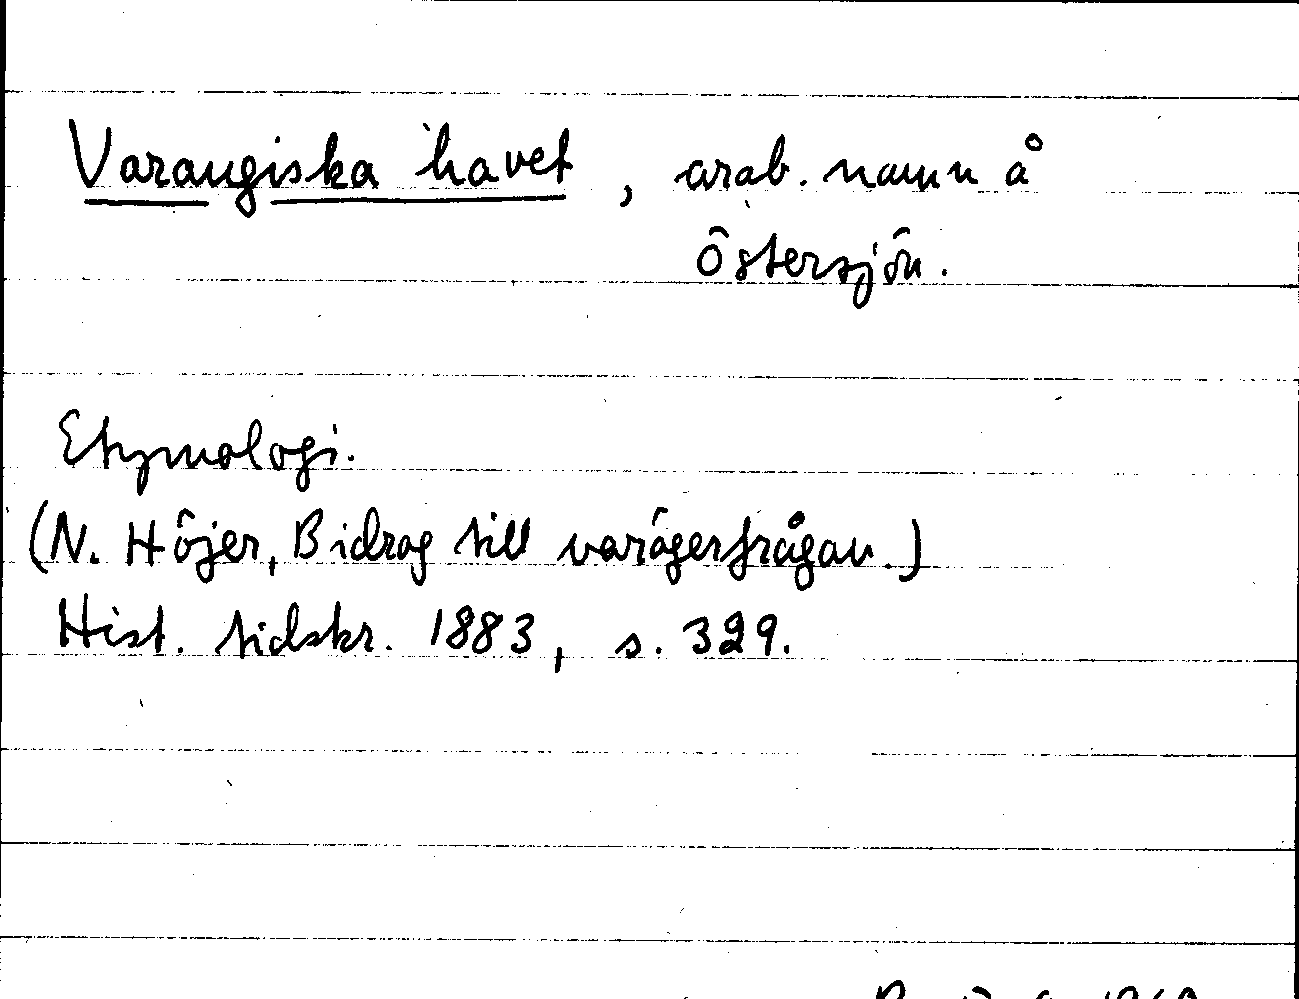 Varangiska havet, arab. namn å
Östersjön.
Etymologi.
(N. Höjer, Bidrag till varägerfrågan.)
Hist. tidskr. 1883, s. 329.